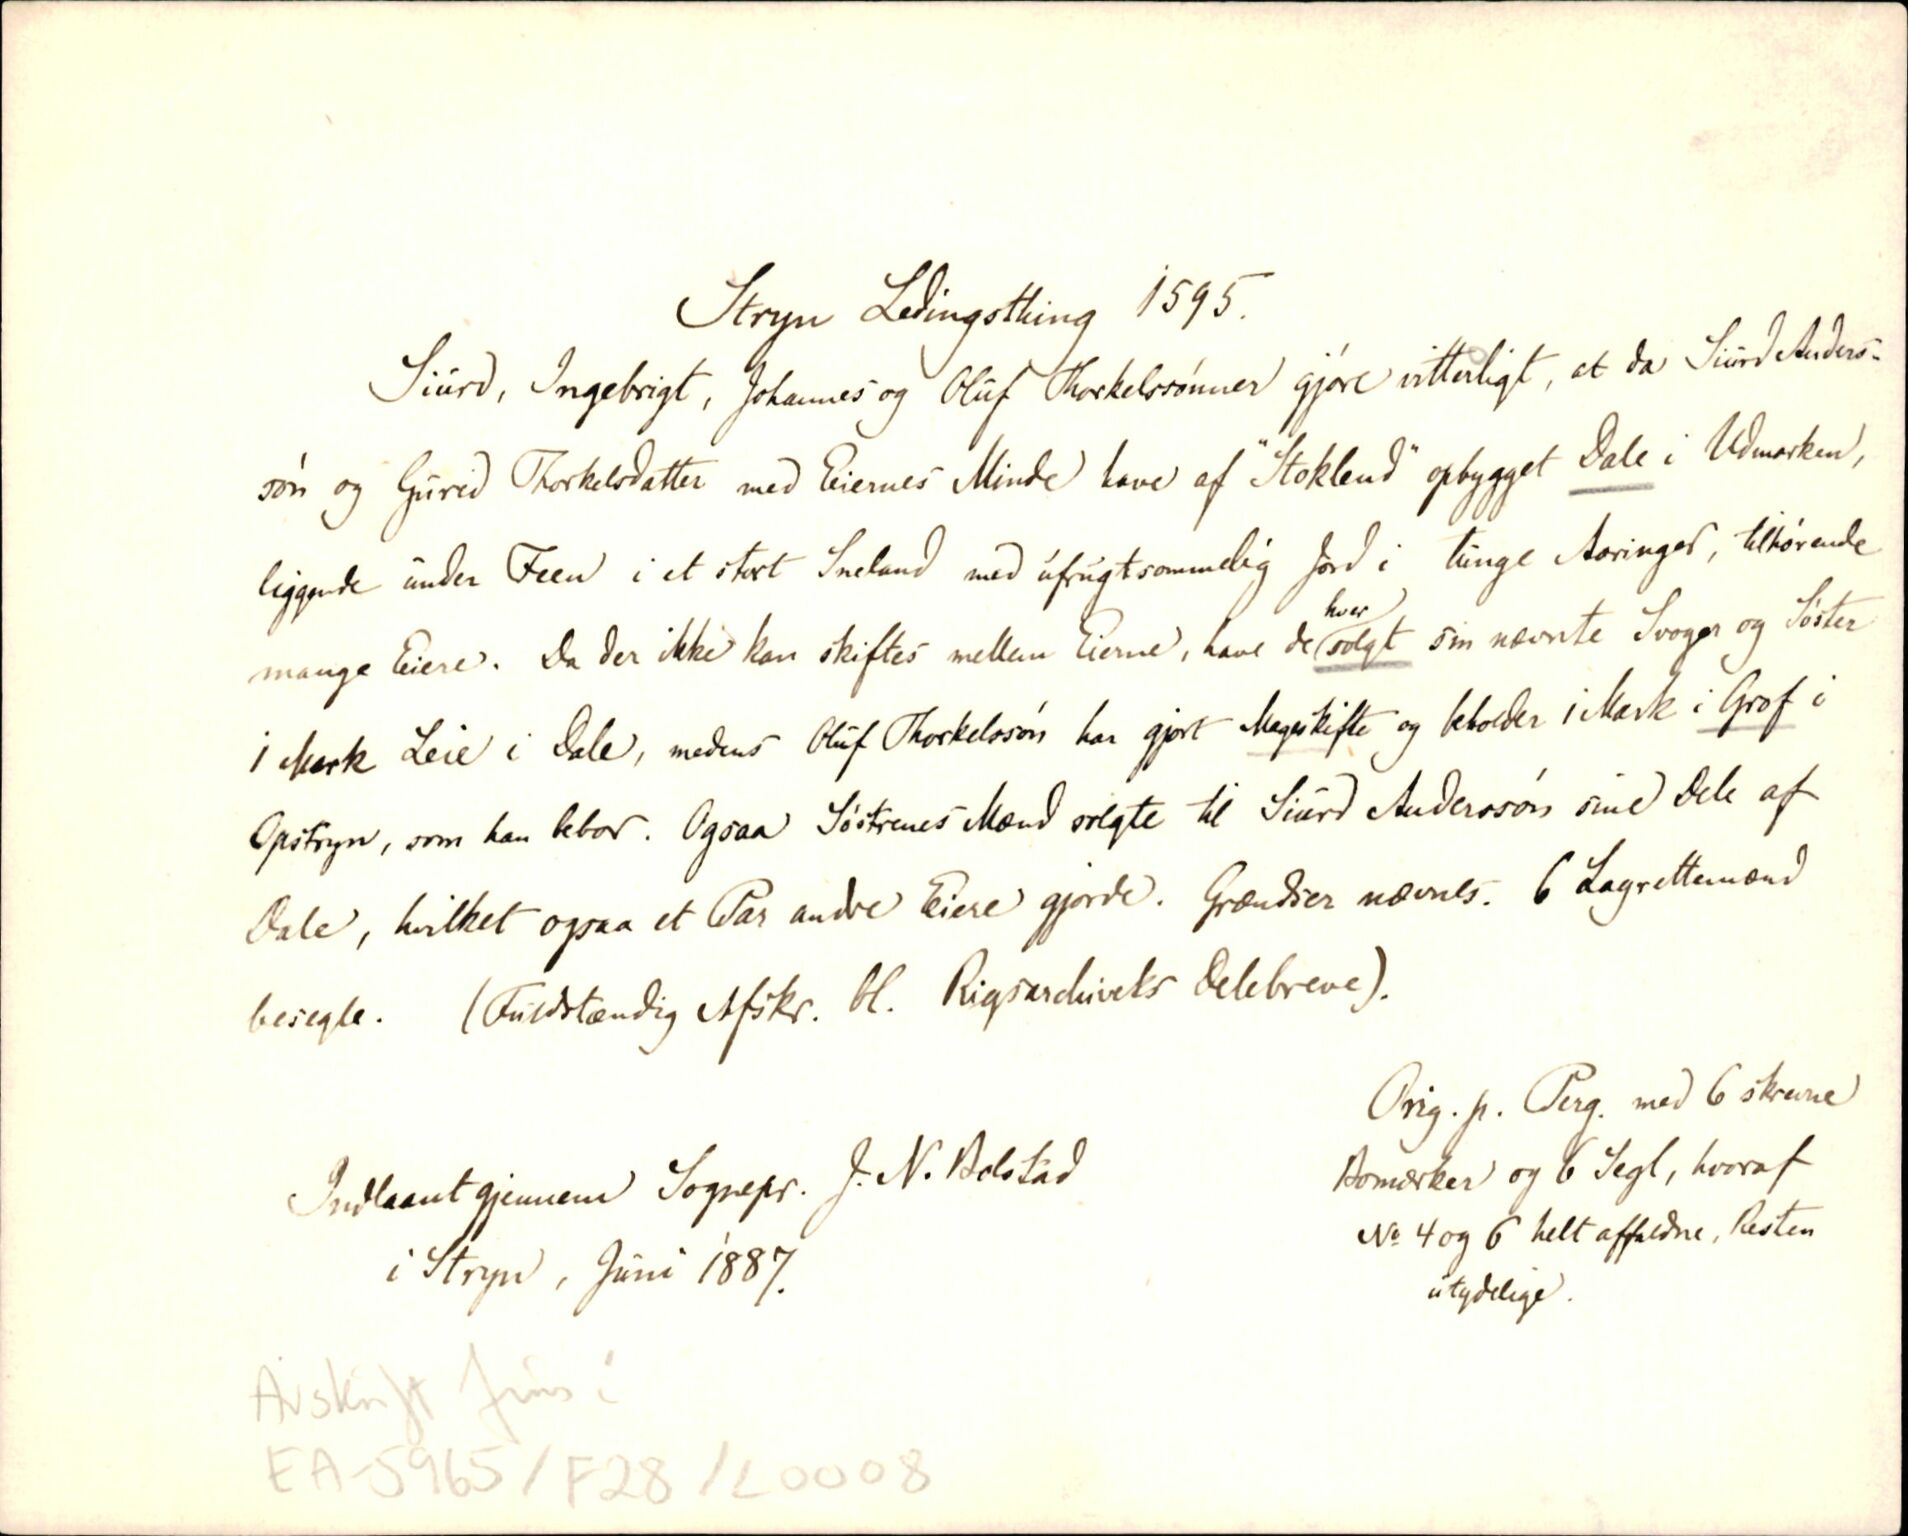 Stryn Ledingsthing 1595.
Siurd, Ingebrigt, Johannes og Oluf Thorkelssønner gjøre vitterligt, at da Siurd Anders-
søn og Gurid Thorkelsdatter med Eiernes Minde have af "Stoklend" opbygget Dale i Udmarken,
liggende under Feen i et stort Sneland med ufrugtsommelig Jord i tunge Aaringer, tilhørende
mange Eiere. Da der ikke kan skiftes mellem Eierne, have de hver solgt sin nævnte Svoger og Søster
1 Mark Leie i Dale, medens Oluf Thorkelssøn har gjort Mageskifte og beholder 1 Mark i Grof i
Opstryn, som han bebor. Ogsaa Søstrenes Mænd solgte til Siurd Anderssøn sine Dele af
Dale, hvilket ogsaa et Par andre Eiere gjorde. Grændser nævnes. 6 Lagrettemænd
besegle. (Fuldstændig Afskr. bl. Rigsarchivets Delebreve).
Orig. p. Perg. med 6 skrevne
Bomærker og 6 Segl, hvoraf
No 4 og 6 helt affaldne, Resten
utydelige.
Indlaant gjennem Sognepr. J. N. Bolstad
i Stryn, Juni 1887.
Avskrift fins i
EA-5965/F28/L0008